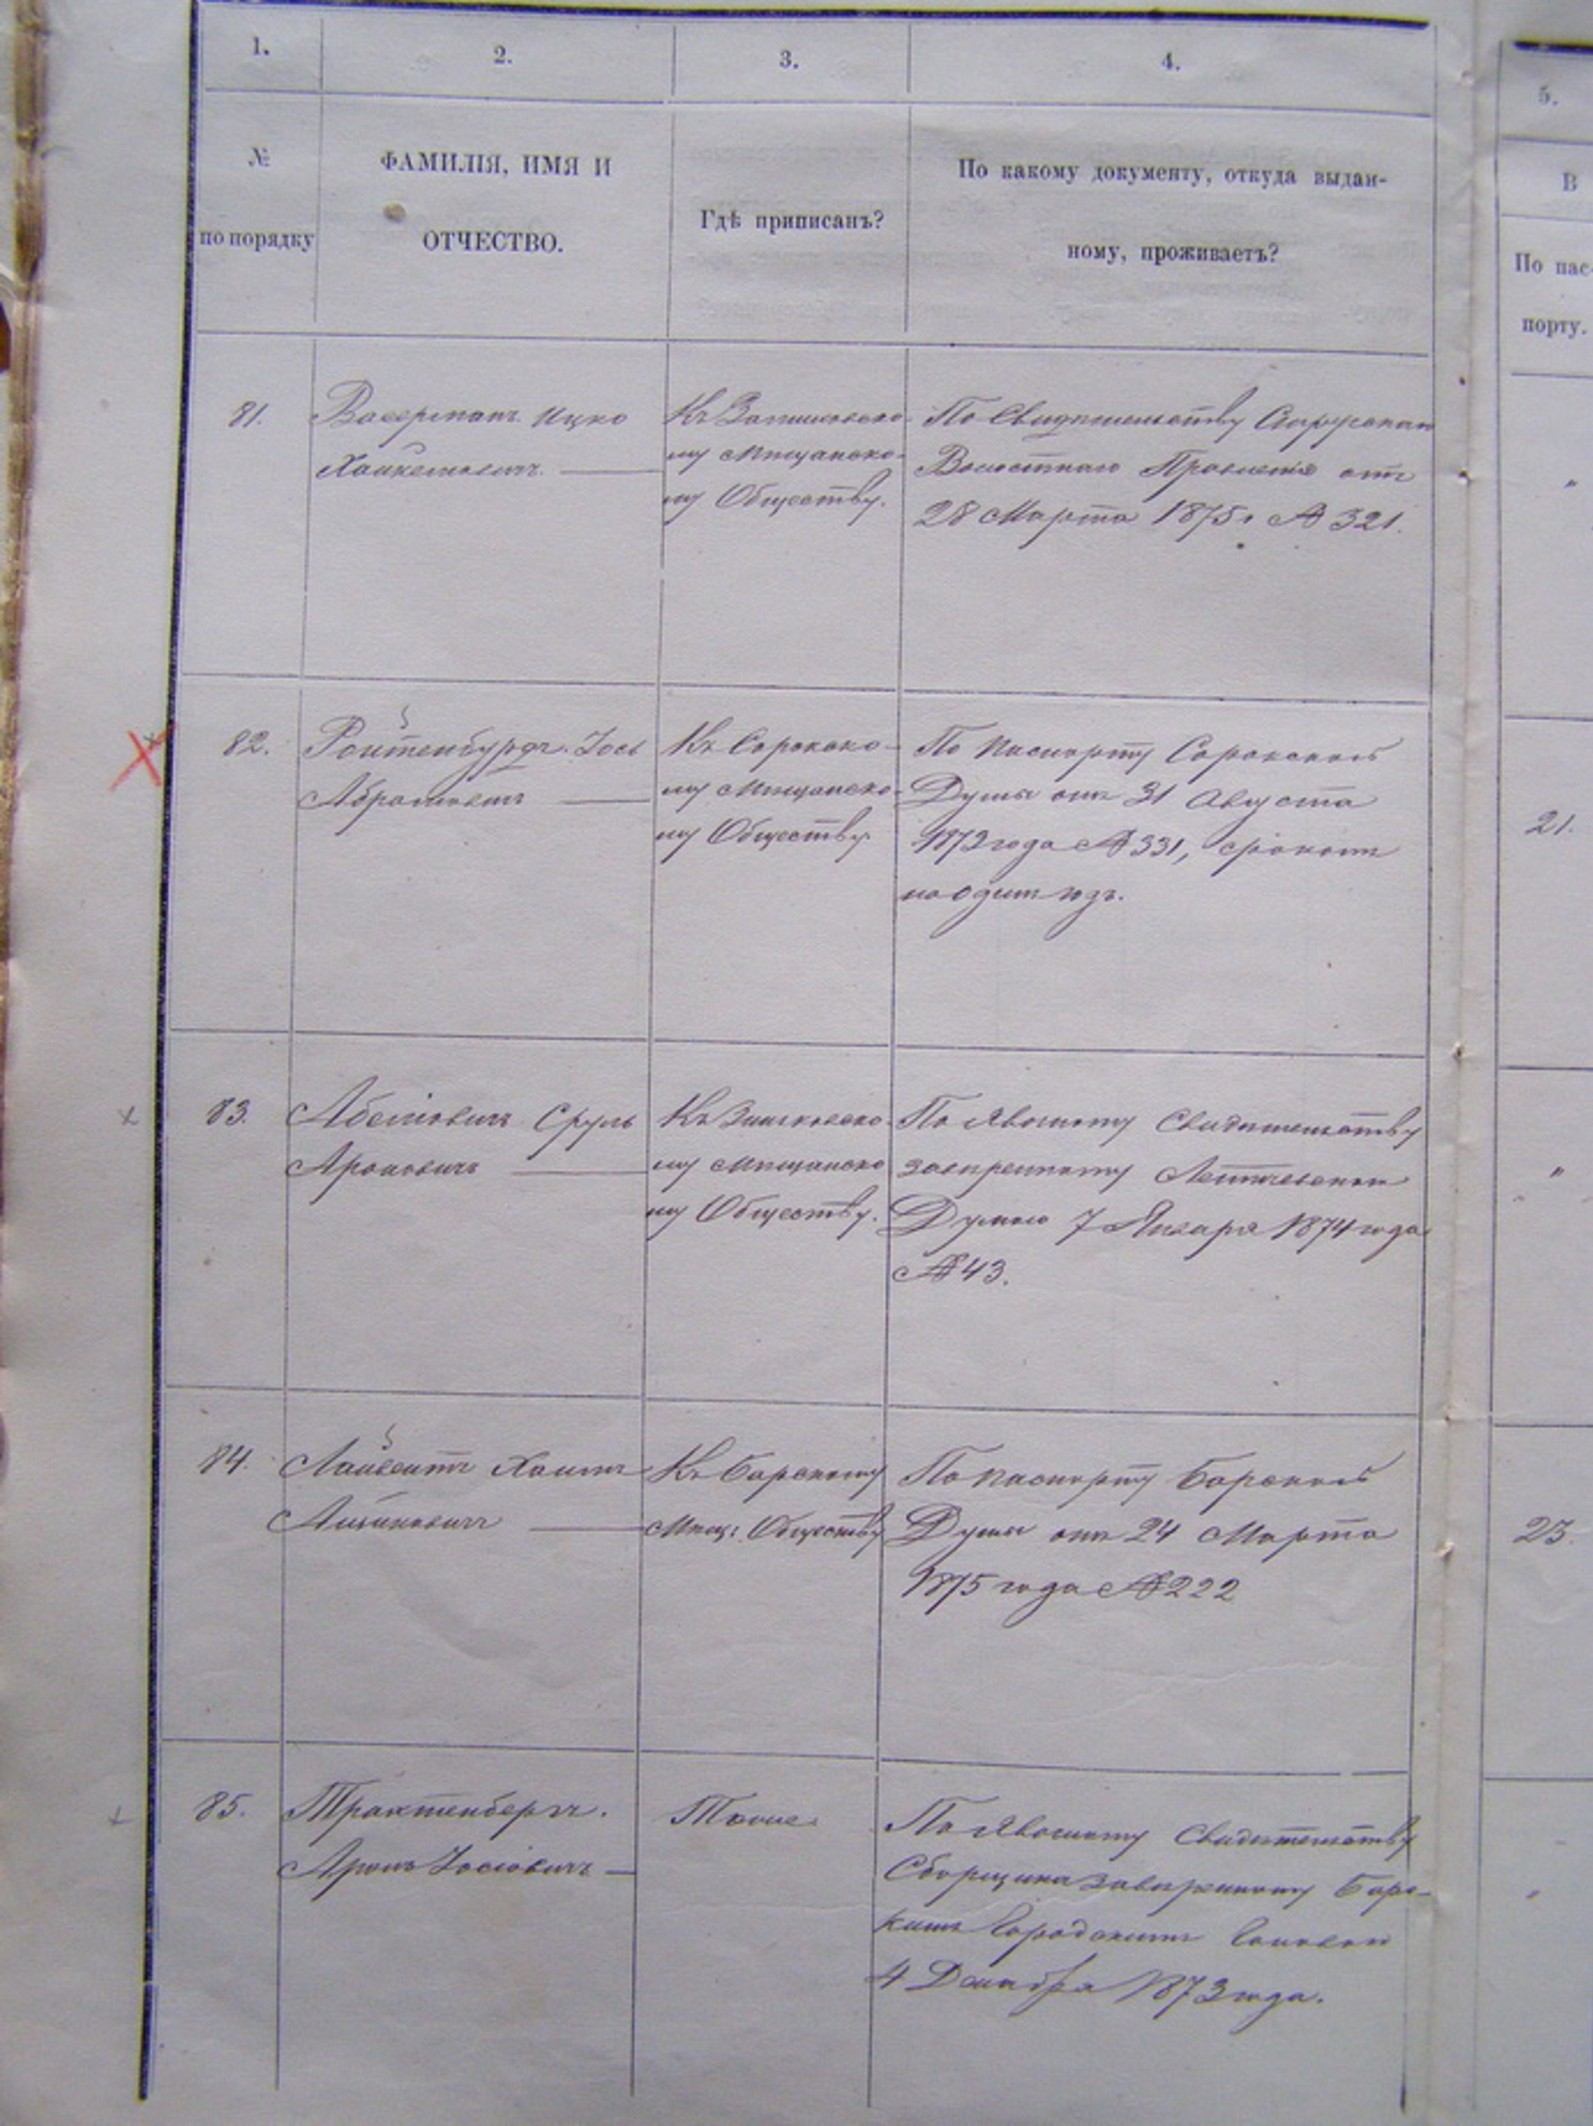 1.
2.
3.
4.
5.
№
по порядку
ФАМИЛІЯ, ИМЯ И
ОТЧЕСТВО.
Гдѣ приписанъ?
По какому документу, откуда выдан-
ному, проживаетъ?
В
По пас-
порту.
81.
Васерманъ Ицко
Хаимелиовичъ
Къ
му Мѣщанско-
му Обществу.
По Свидѣтельству
Волостнаго Правленія отъ
28 Марта 1875 г № 321.
„
82.
Ройтенбургъ Іось
Абрамовичъ
Къ Сорокско-
му Мѣщанско-
му Обществу
По Паспорту Сорокской
Думы отъ 31 Августа
1872 года № 331, срокомъ
на одинъ годъ.
21.
83.
Абелiовичъ Сруль
Ароновичъ
Къ Зиньковско-
му Мѣщанско
му Обществу.
По Явочному Свидѣтельству
завѣренному Летичевскою
Думою 7 Января 1874 года
№ 43.
„
84.
Лайвентъ Хаимъ
Къ Барскому
Мѣщ: Обществу
По паспорту Барской
Думы отъ 24 Марта
1875 года № 222
23.
85.
Трахтенбергъ.
Аронъ Іосіовичъ
Тоже
По Явочному Свидѣтельству
Сборщика завѣренному Барс-
кимъ Городскимъ
4 Декабря 1873 года.
„